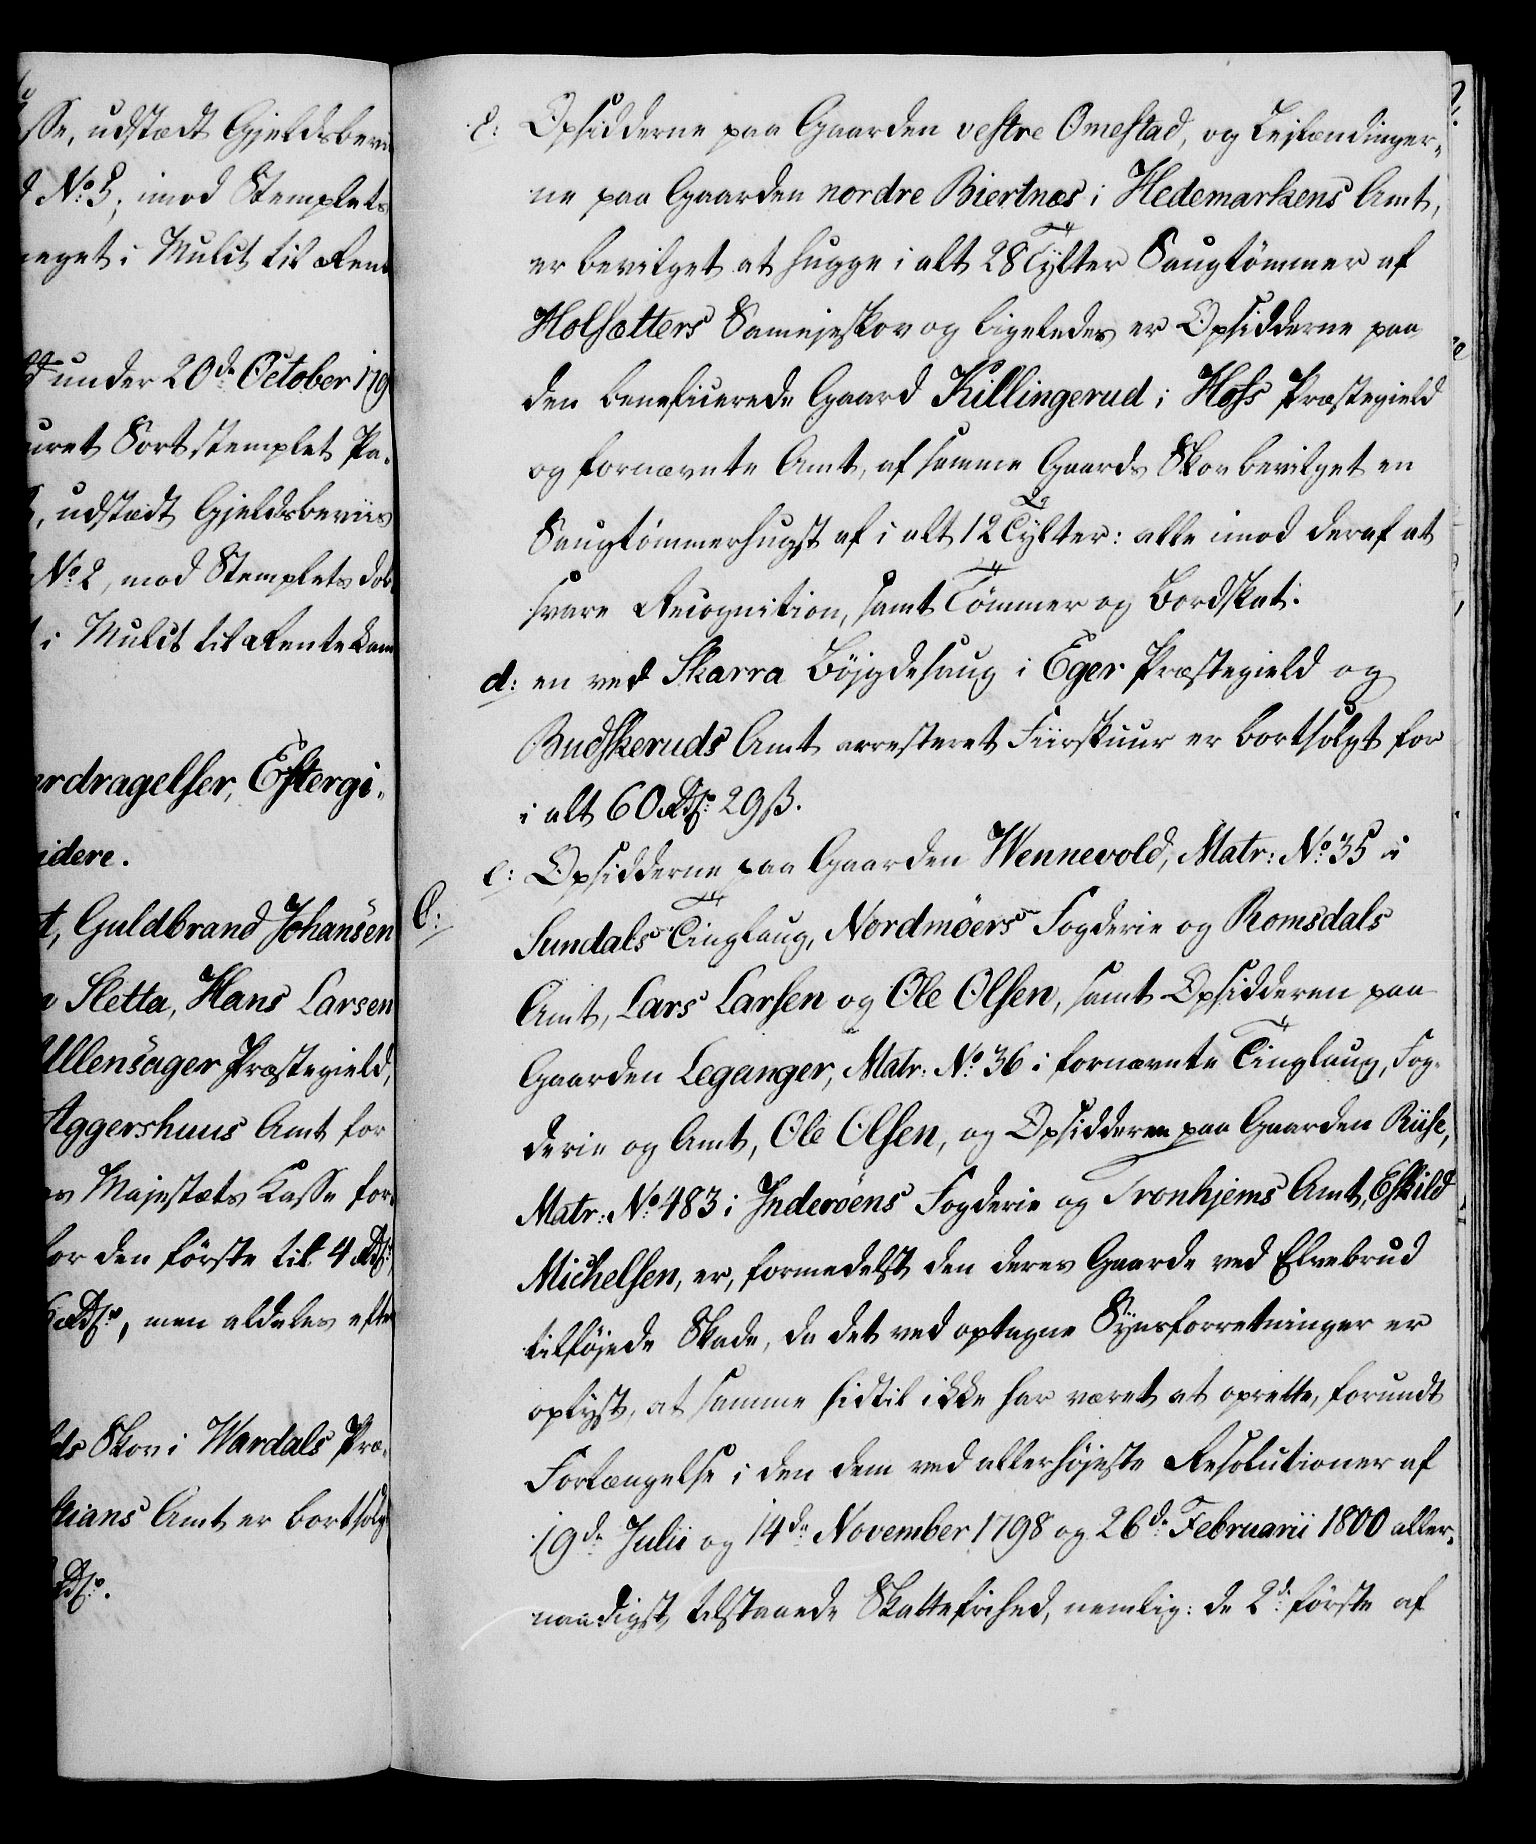 sse, udstædt Gjeldsbevi
No: 3, imod Stemplets
meget i Mulct til Rent
under 20de October 179
uret Sort stemplet Pa-
, udstædt Gjeldsbeviis
No: 2, mod Stemplets dob
i Mulct til Rentekam
erdragelser, Eftergi-
videre.
t, Guldbrand Johansen
Sletta, Hans Larsen
Ullensager Præstegield,
Aggershuus Amt for
es Majestæts Casse for-
for den første til 4 Rdr:
Rdr:, men aldeles efte
ds Skov i Wardals Præ-
tians Amt er bortsolg
Rdr:.
c: Opsidderne paa Gaarden vestre Omestad, og Leilændinger-
ne paa Gaarden nordre Biertnæs i Hedemarkens Amt,
er bevilget at hugge i alt 28 Tylter Saugtømmer af
Holsætters Sameieskov og ligeledes er Opsidderne paa
den beneficerede Gaard Killingerud i Hoffs Præstegield
og fornævnte Amt, af samme Gaards Skov bevilget en
Saugtømmerhugst af i alt 12 Tylter: alle imod deraf at
svare Recognition, samt Tømmer og Bordskat.
d: en ved Skarra Böjgdesaug i Eger Præstegield og
Budskeruds Amt arresteret Fiirskuur er bortsolgt for
i alt 60 Rdr: 29 ß.
C:
e: Opsidderne paa Gaarden Wennevold, Matr: No: 35 i
Sundals Tinglaug, Nordmöers Fogderie og Romsdals
Amt, Lars Larsen og Ole Olsen, samt Opsidderen paa
Gaarden Leganger, Matr: No: 36 i fornævnte Tinglaug, Fog-
derie og Amt, Ole Olsen, og Opsidderen paa Gaarden Riise,
Matr: No: 483 i Inderöens Fogderie og Tronhjems Amt, Eskild
Michelsen, er, formedelst den deres Gaarde ved Elvebrud
tilføjede Skade, da det ved optagne Synsforretninger er
oplyst, at samme hidtil ikke har været at oprette, forundt
Forlængelse i den dem ved allerhøjeste Resolutioner af
19de Julii og 14de November 1798 og 26de Februarii 1800 aller-
naadigst tilstaaede Skattefrihed, nemlig: de 2de første af